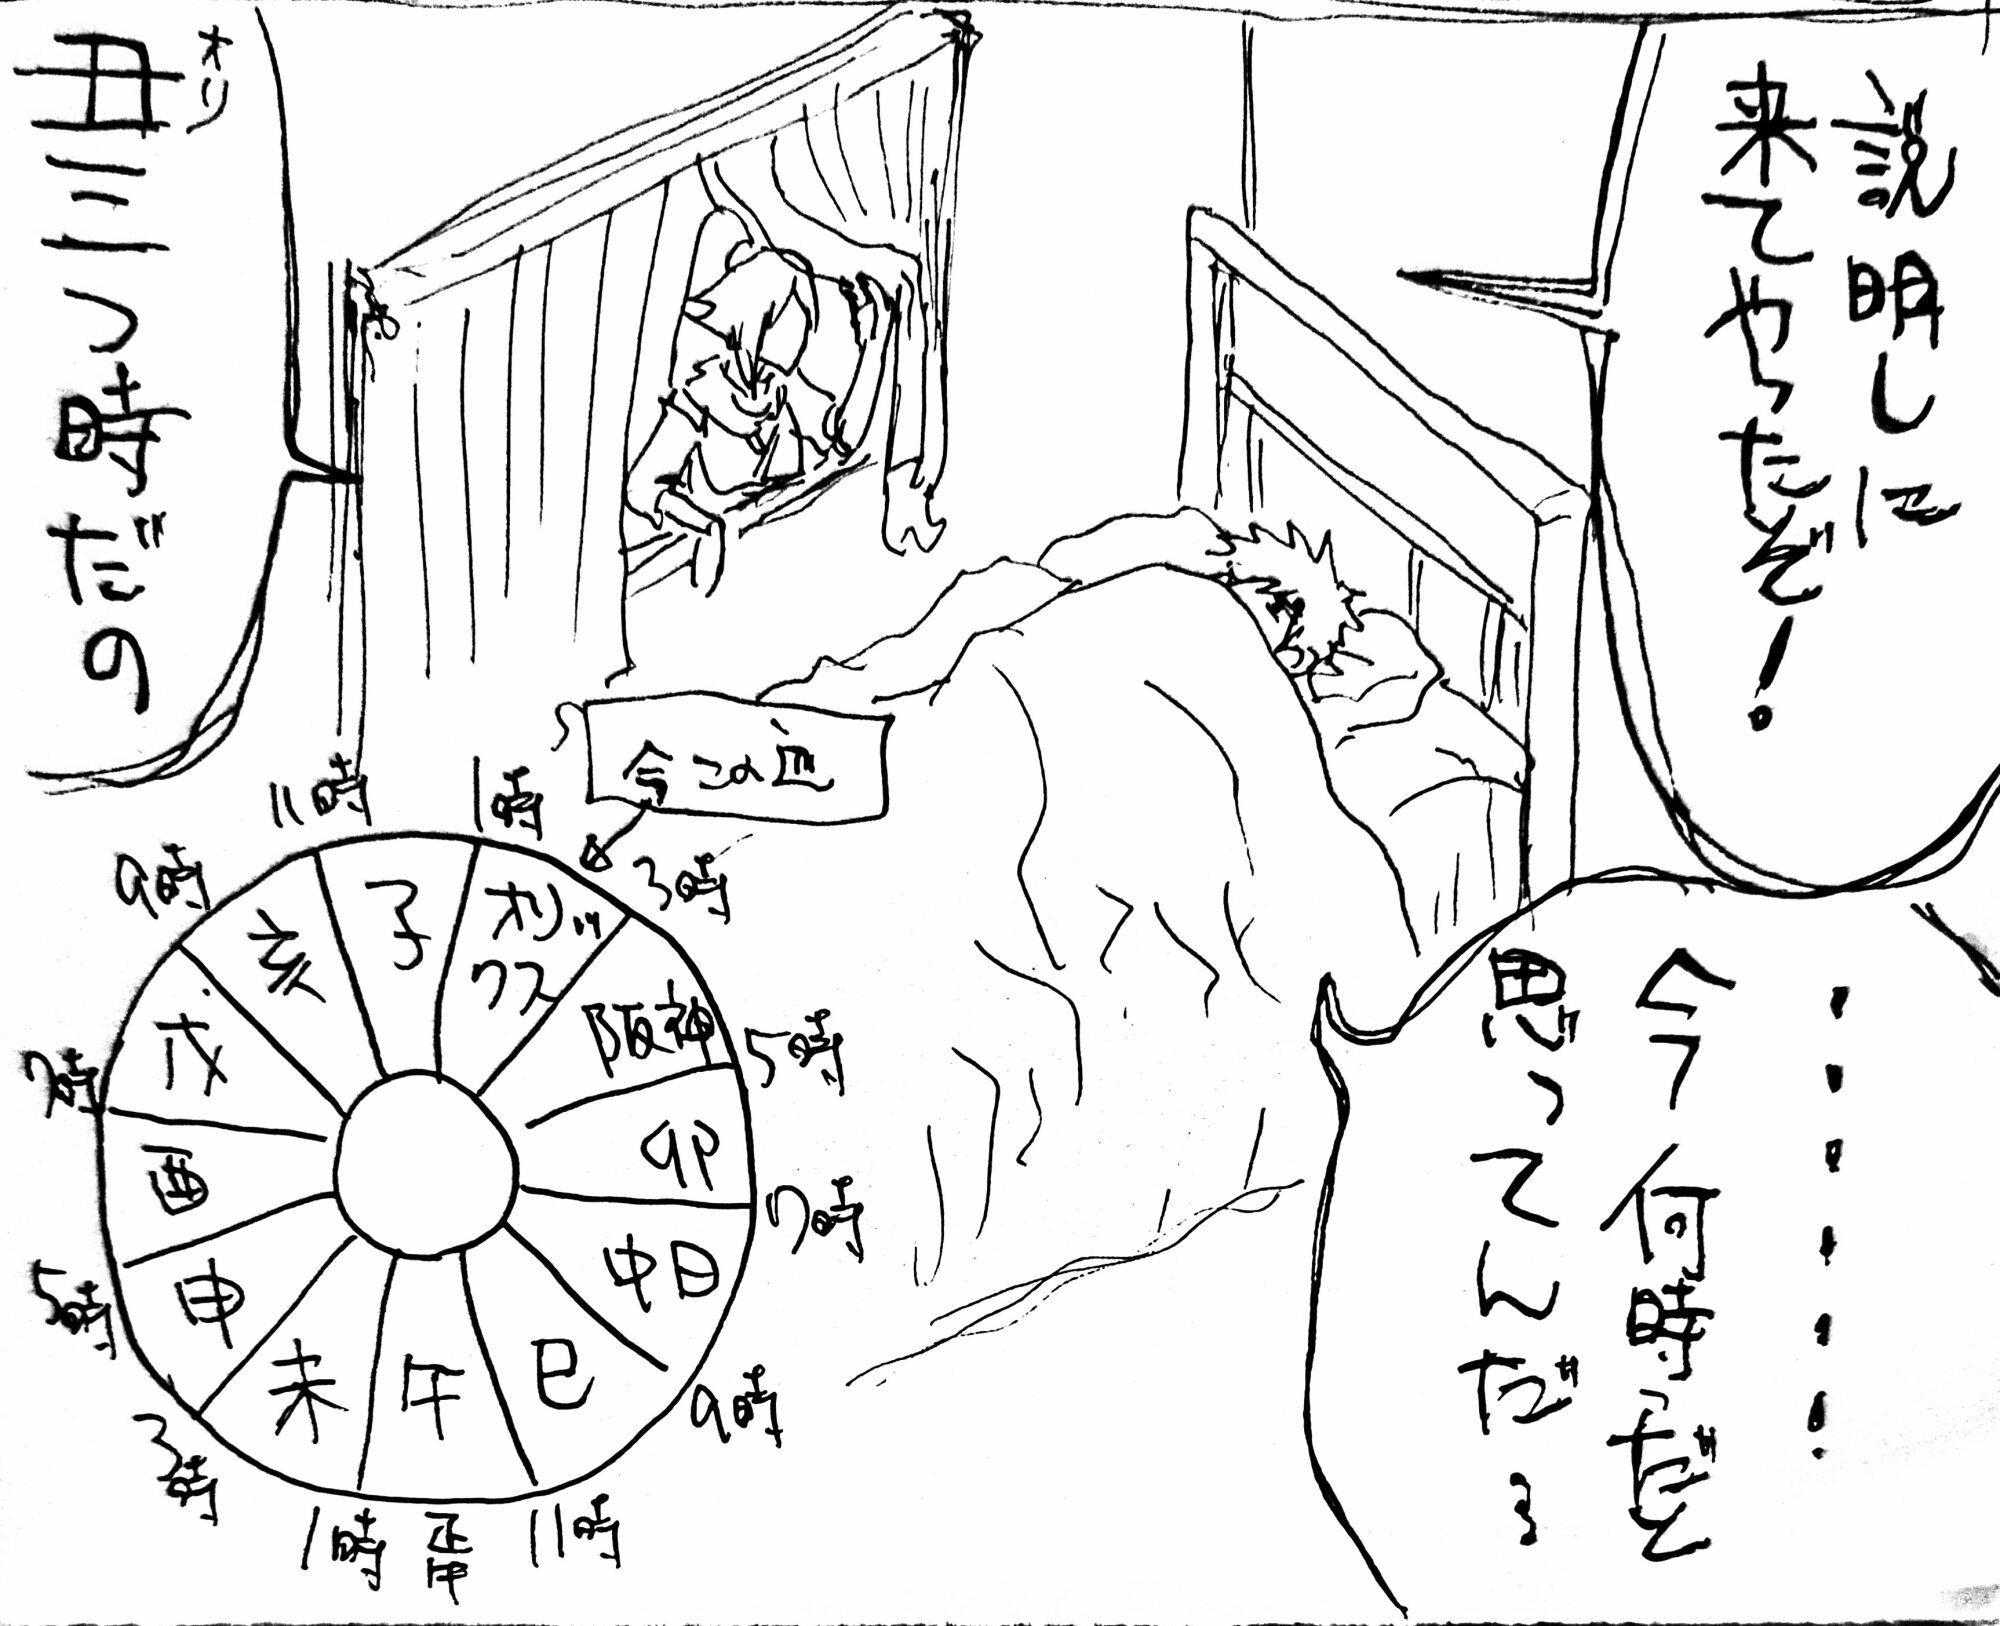 説明しに
来てやったぞ!
・・・・・・!
今何時だと
思ってんだ
オリ
丑三つ時だの
今この辺
11時
1時
3時
5時
7時
9時
11時
正午
1時
3時
5時
7時
9時
子
オリックス
阪神
卯
中日
巳
午
未
申
酉
戌
亥